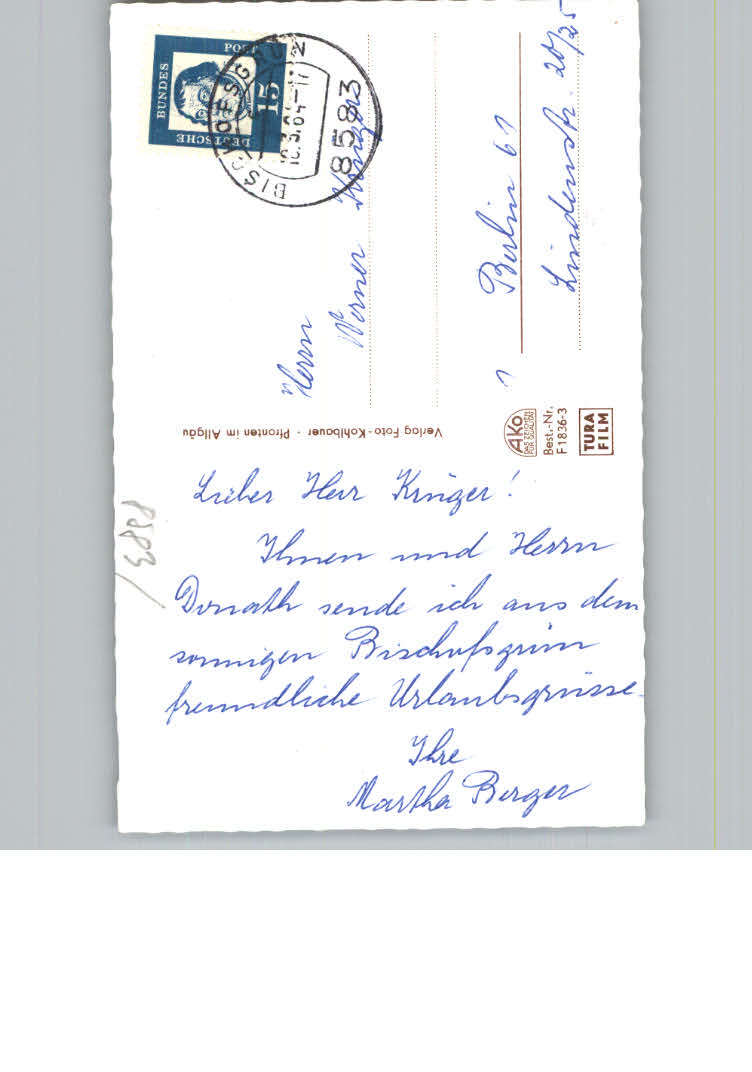 Lieber Herr Krüger!
Ihnen und Herrn
Donath sende ich aus dem
sonnigen Bischofsgrün
freundliche Urlaubsgrüsse.
Ihre
Martha Berger
Herrn
Werner Krüger
1 Berlin 61
Lindenstr. 20/25
Verlag Foto-Kohlbauer · Pfronten im Allgäu
AKo
DAS ZEICHEN
FÜR QUALITÄT
Best.-Nr.
F 1836-3
TURA
FILM
DEUTSCHE
BUNDES
POST
15
BISCHOFSGRÜN
8583